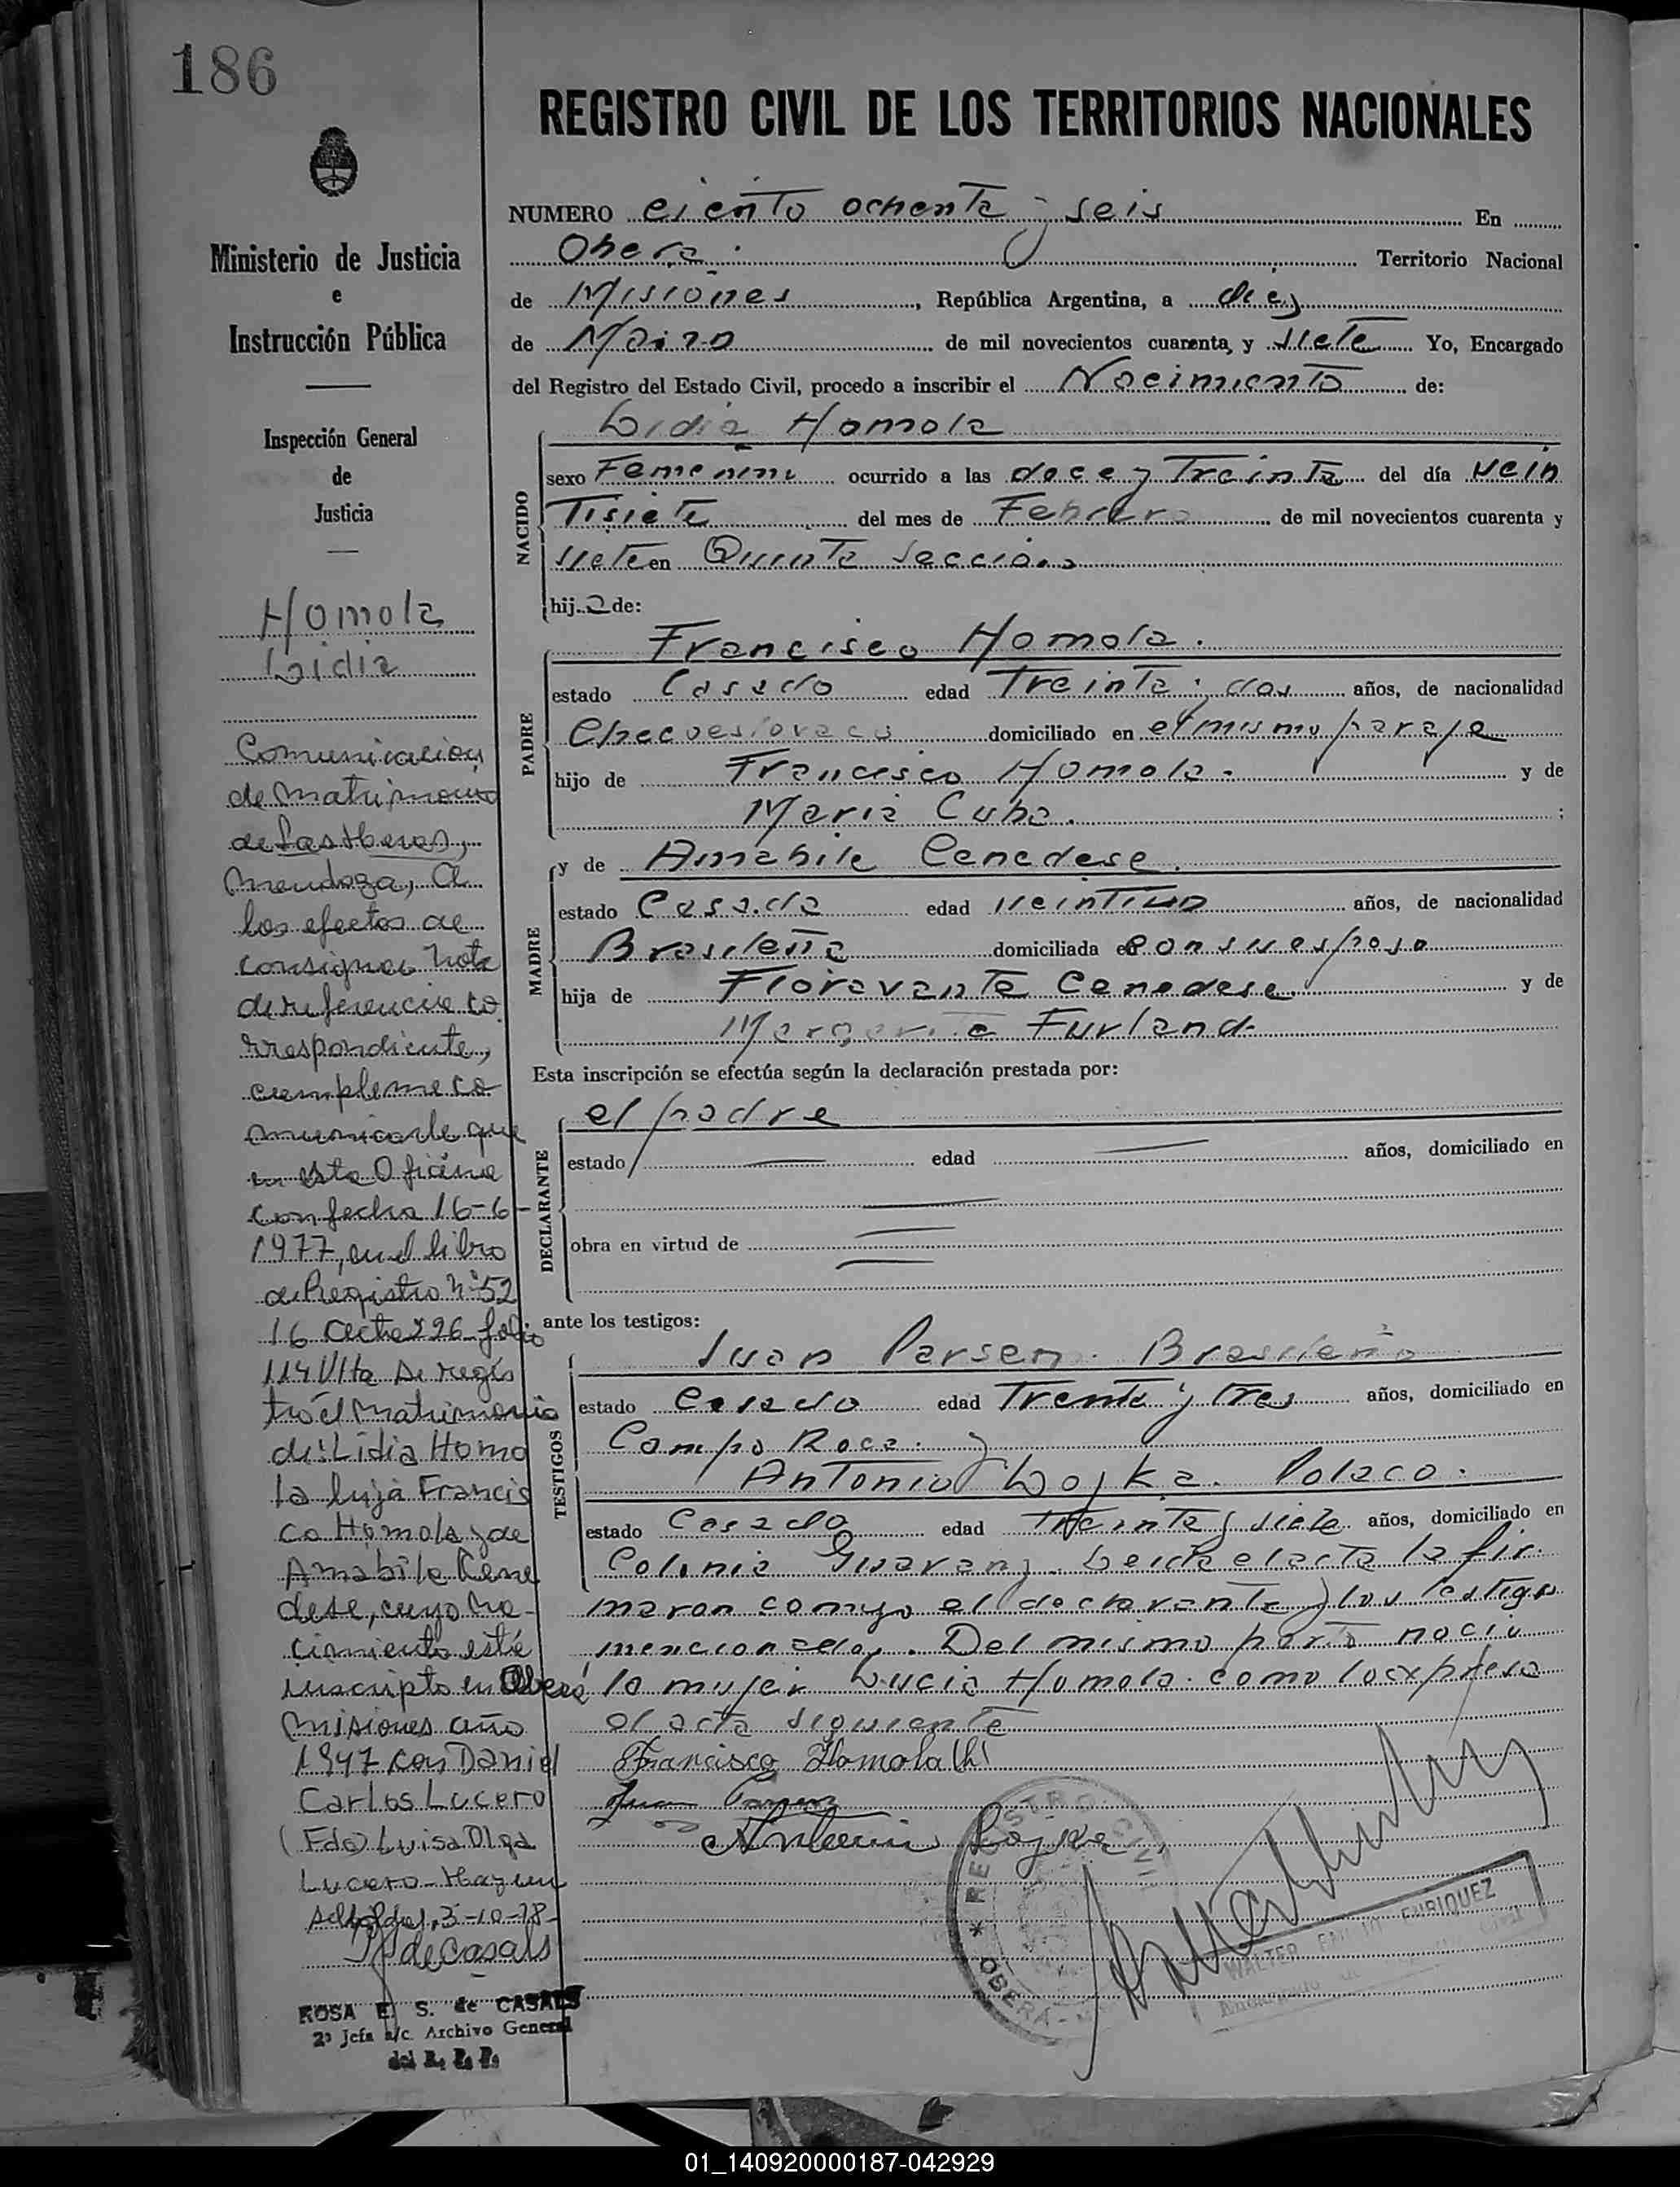 186
REGISTRO CIVIL DE LOS TERRITORIOS NACIONALES
Ministerio de Justicia
e
Instrucción Pública
Inspección General
de
Justicia
Homola
Lidia
Comunicacion
de matrimonio
de Las Heras,
Mendoza, a
los efectos de
consignar nota
de referencia co
rrespondiente,
cumpleme co
municarle que
en esta Oficina
con fecha 16-6-
1977, en el libro
de Registro Nº 52
16 Acta 226 folio
114 Vta se regis
tró el matrimonio
de: Lidia Homo
la hija Francis
co Homola y de
Amabile Cene
dese, cuyo na-
cimiento está
inscripto en Oberá
Misiones año
1947 con Daniel
Carlos Lucero
(Fdo) Luisa Olga
Lucero - Hay un
3-10-78-
de Casals
ROSA E. S. de CASALS
2ª Jefa a/c. Archivo General
del R. P. P.
NUMERO ciento ochenta y seis En
Obera. Territorio Nacional
de Misiones, República Argentina, a diez
de Marzo de mil novecientos cuarenta y siete Yo, Encargado
del Registro del Estado Civil, procedo a inscribir el Nacimiento de:
NACIDO
Lidia Homola
sexo Femenino ocurrido a las doce y Treinta del día vein
Tisiete del mes de Febrero de mil novecientos cuarenta y
siete en Quinta Seccion
hija de:
PADRE
Francisco Homola.
estado Casado edad Treinta y dos años, de nacionalidad
Checoeslovaco domiciliado en el mismo paraje
hijo de Francisco Homola. y de
Maria Cuba. ;
MADRE
y de Amabile Cenedese.
estado Casada edad veintiun años, de nacionalidad
Brasileña domiciliada en con su esposo
hija de Fioravante Cenedese. y de
Margarita Furland.
Esta inscripción se efectúa según la declaración prestada por:
DECLARANTE
el padre
estado edad años, domiciliado en
obra en virtud de
ante los testigos:
TESTIGOS
Juan Parsen. Brasileño
estado Casado edad Trenta y tres años, domiciliado en
Campo Roca. y
Antonio Lojka. Polaco.
estado Casado edad Treinta y siete años, domiciliado en
Colonia Guarany. Leida el acta la fir-
maron conmigo el declarante y los testigos
mencionados. Del mismo parto nació
la mujer Lucia Homola. como lo expresa
el acta siguiente
Francisco Homola (h)
Juan
Antonio Lojka
REGISTRO CIVIL
OBERA
WALTER EMILIO ENRIQUEZ
01_140920000187-042929